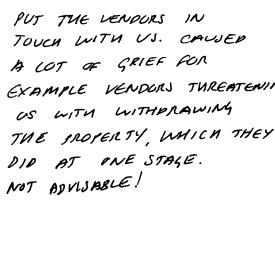 PUT THE VENDORS IN
TOUCH WITH US. CAUSED
A LOT OF GRIEF FOR
EXAMPLE VENDORS THREATENIN
US WITH WITHDRAWING
THE PROPERTY, WHICH THEY
DID AT ONE STAGE.
NOT ADVISABLE!